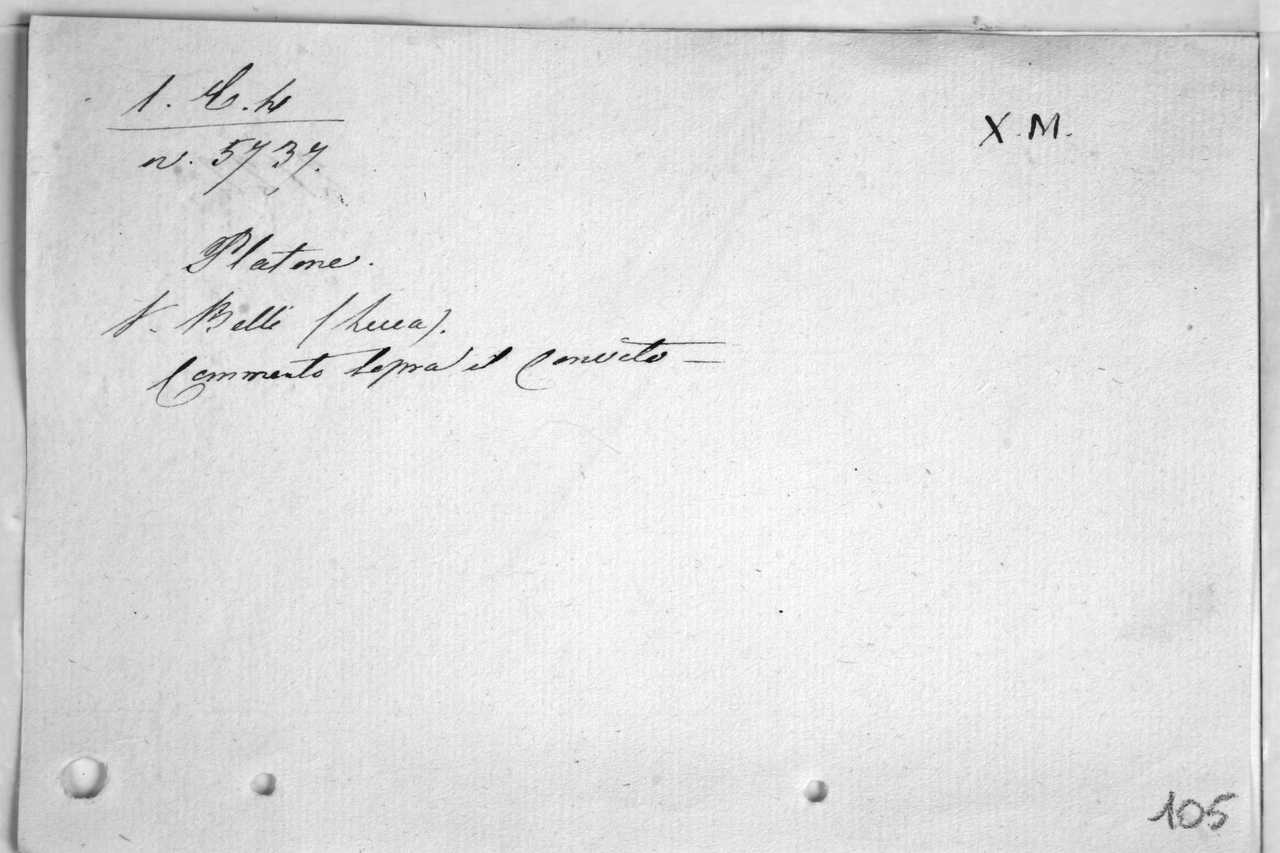 1. C. 4
X. M.
n. 5737.
Platone.
V. Belli (Luca).
Commento sopra il Convito =
105